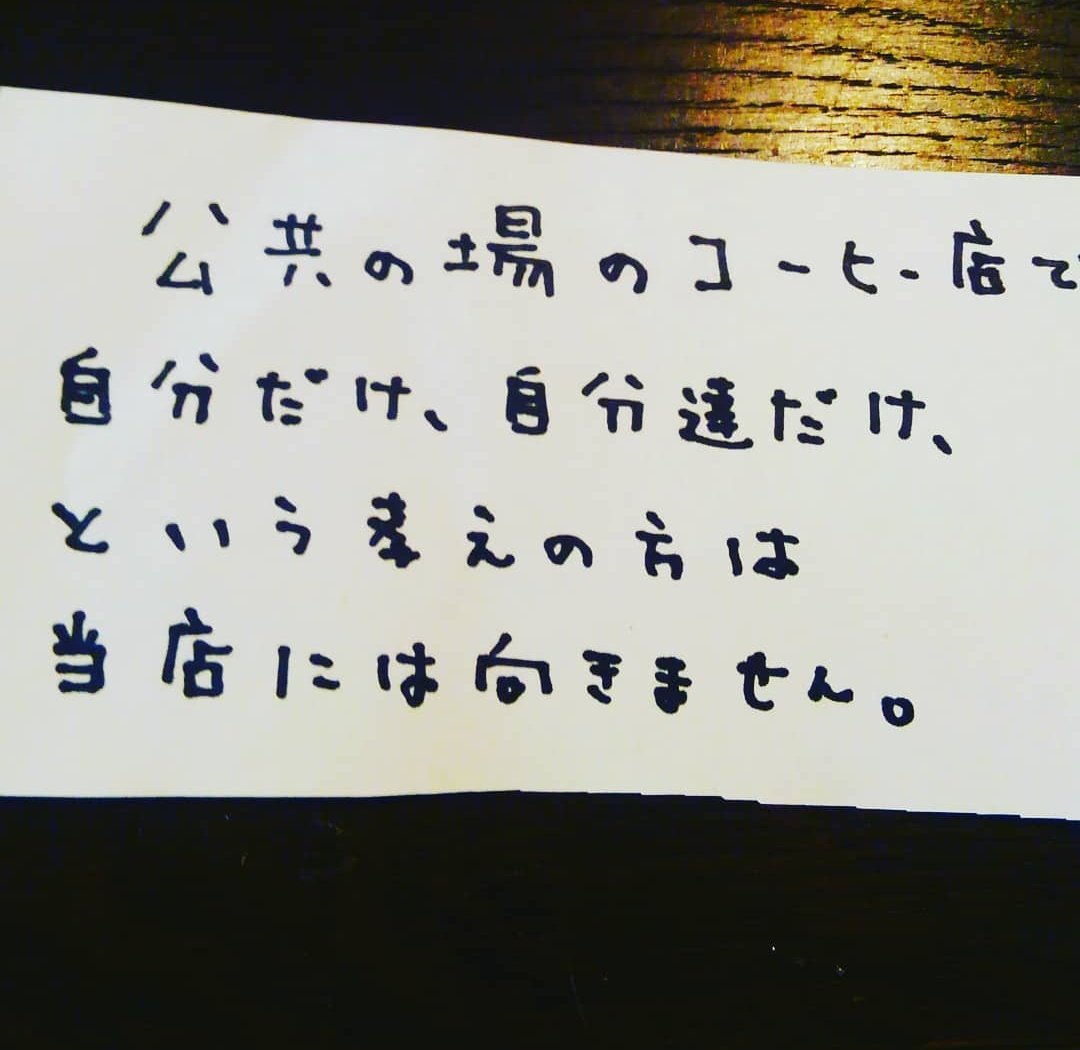 公共の場のコーヒー店で
自分だけ、自分達だけ、
という考えの方は
当店には向きません。